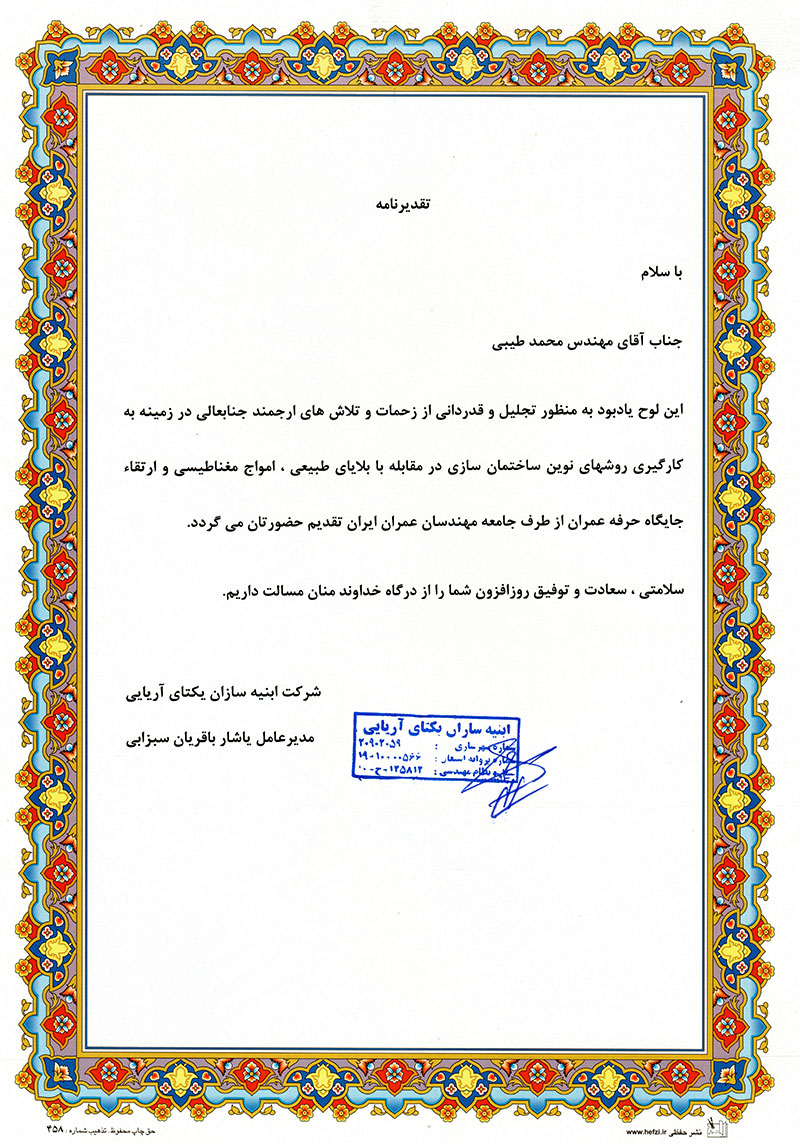 تقدیرنامه
با سلام
جناب آقای مهندس محمد طیبی
این لوح یادبود به منظور تجلیل و قدردانی از زحمات و تلاش های ارجمند جنابعالی در زمینه به
کارگیری روشهای نوین ساختمان سازی در مقابله با بلایای طبیعی ، امواج مغناطیسی و ارتقاء
جایگاه حرفه عمران از طرف جامعه مهندسان عمران ایران تقدیم حضورتان می گردد.
سلامتی ، سعادت و توفیق روزافزون شما را از درگاه خداوند منان مسالت داریم.
شرکت ابنیه سازان یکتای آریایی
مدیرعامل یاشار باقریان سبزابی
ابنیه سازان یکتای آریایی
۲۰۹۰۲۰۵۹
۱۹-۱۰۰۰۰۵۶۶
نظام مهندسی : ۱۲۵۸۱۲-ح-۰۰
نشر حفظی www.hefzi.ir
حق چاپ محفوظ. تذهیب شماره : ۴۵۸